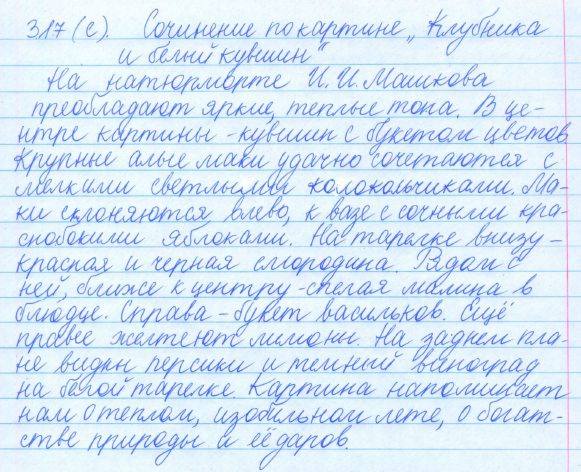 317 (с). Сочинение по картине „Клубника
и белый кувшин"
На натюрморте И. И. Машкова
преобладают яркие, теплые тона. В це-
нтре картины - кувшин с букетом цветов.
Крупные алые маки удачно сочетаются с
мелкими светлыми колокольчиками. Ма-
ки склоняются влево, к вазе с сочными кра-
снобокими яблоками. На тарелке внизу -
красная и черная смородина. Рядом с
ней, ближе к центру - спелая малина в
блюдце. Справа - букет васильков. Ещё
правее желтеют лимоны. На заднем пла-
не видны персики и темный виноград
на белой тарелке. Картина напоминает
нам о теплом, изобильном лете, о богат-
стве природы и её даров.